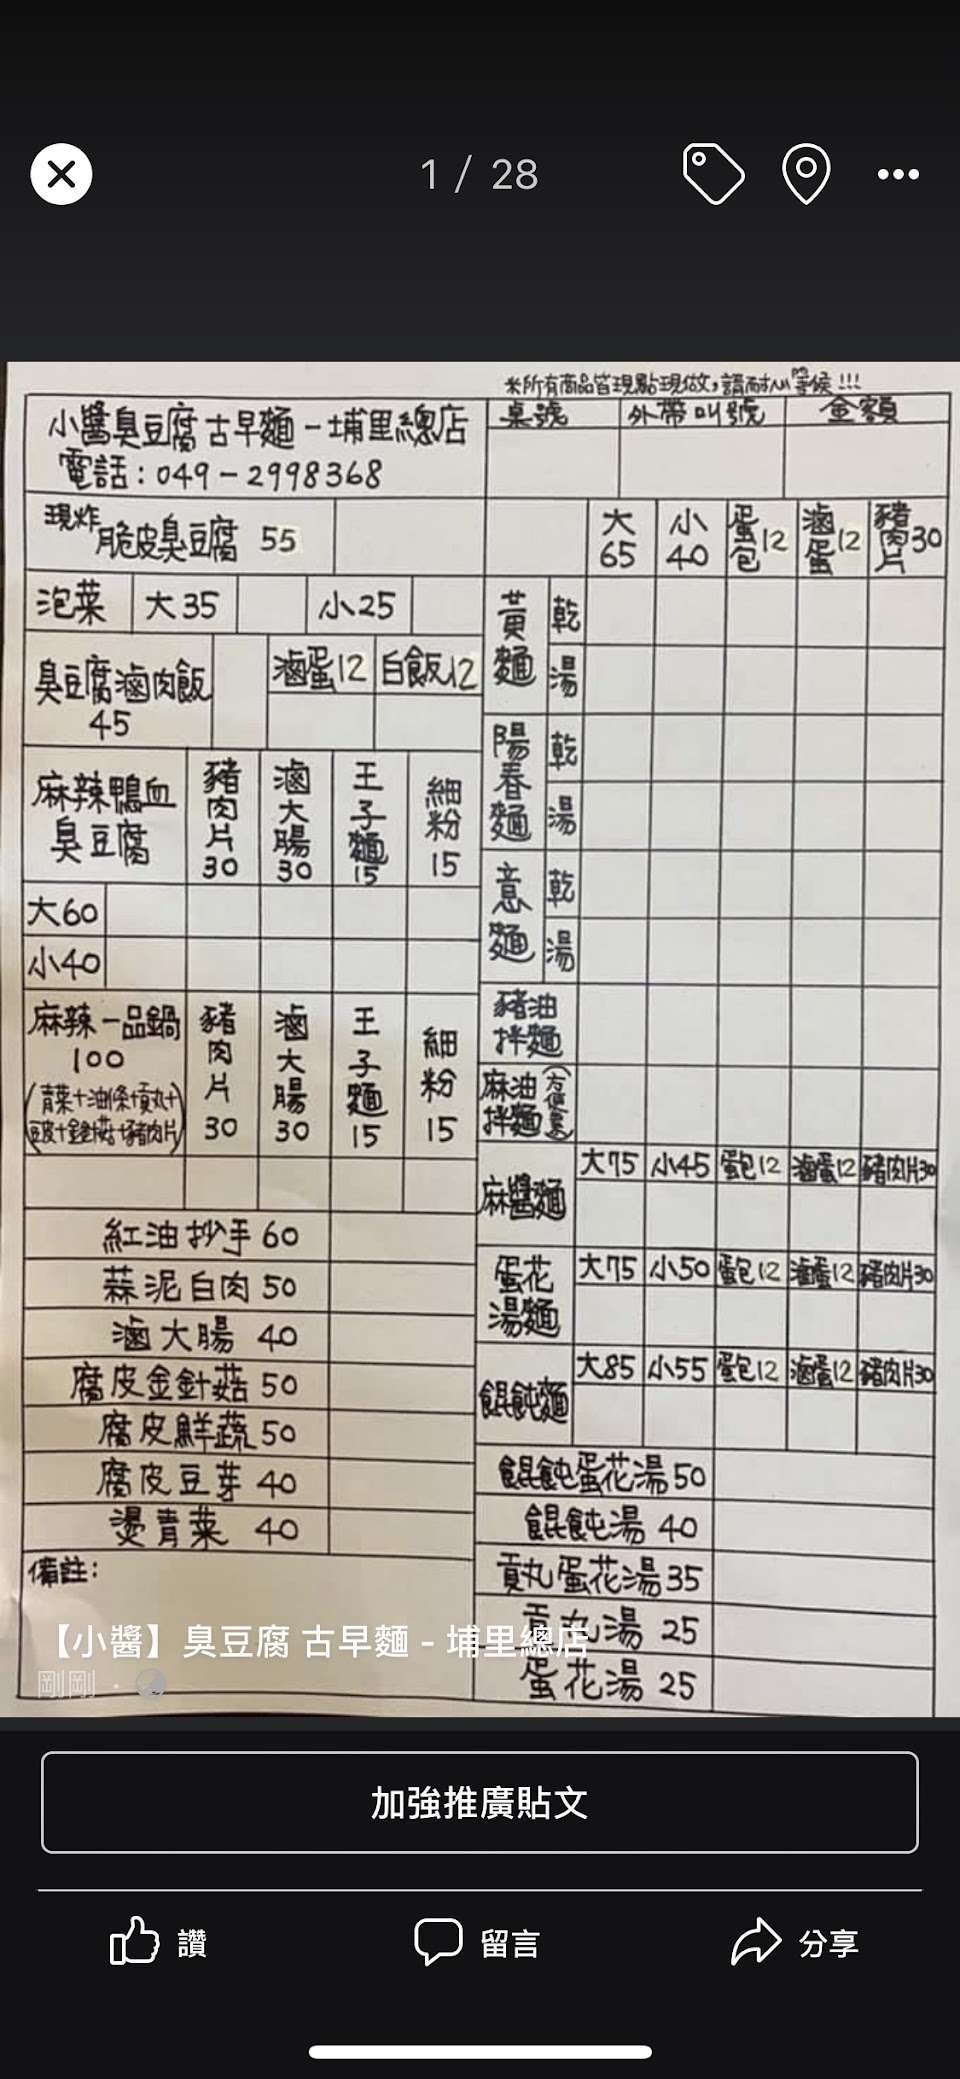 1 / 28
※所有商品皆現點現做，請耐心等候!!!
小醬臭豆腐 古早麵－埔里總店
電話：049－2998368
桌號 外帶叫號 金額
現炸脆皮臭豆腐 55
泡菜 大35 小25
臭豆腐滷肉飯 45
滷蛋12 白飯12
麻辣鴨血臭豆腐 豬肉片30 滷大腸30 王子麵15 細粉15
大60
小40
麻辣一品鍋 100 豬肉片30 滷大腸30 王子麵15 細粉15
(青菜+油條+貢丸+
豆皮+金針菇+豬肉片)
紅油抄手 60
蒜泥白肉 50
滷大腸 40
腐皮金針菇 50
腐皮鮮蔬 50
腐皮豆芽 40
燙青菜 40
備註：
大65 小40 蛋包12 滷蛋12 豬肉片30
黃麵 乾
湯
陽春麵 乾
湯
意麵 乾
湯
豬油拌麵
麻油拌麵
麻醬麵 大75 小45 蛋包12 滷蛋12 豬肉片30
蛋花湯麵 大75 小50 蛋包12 滷蛋12 豬肉片30
餛飩麵 大85 小55 蛋包12 滷蛋12 豬肉片30
餛飩蛋花湯50
餛飩湯 40
貢丸蛋花湯35
貢丸湯 25
蛋花湯 25
【小醬】臭豆腐 古早麵 - 埔里總店
剛剛 ·
加強推廣貼文
讚 留言 分享